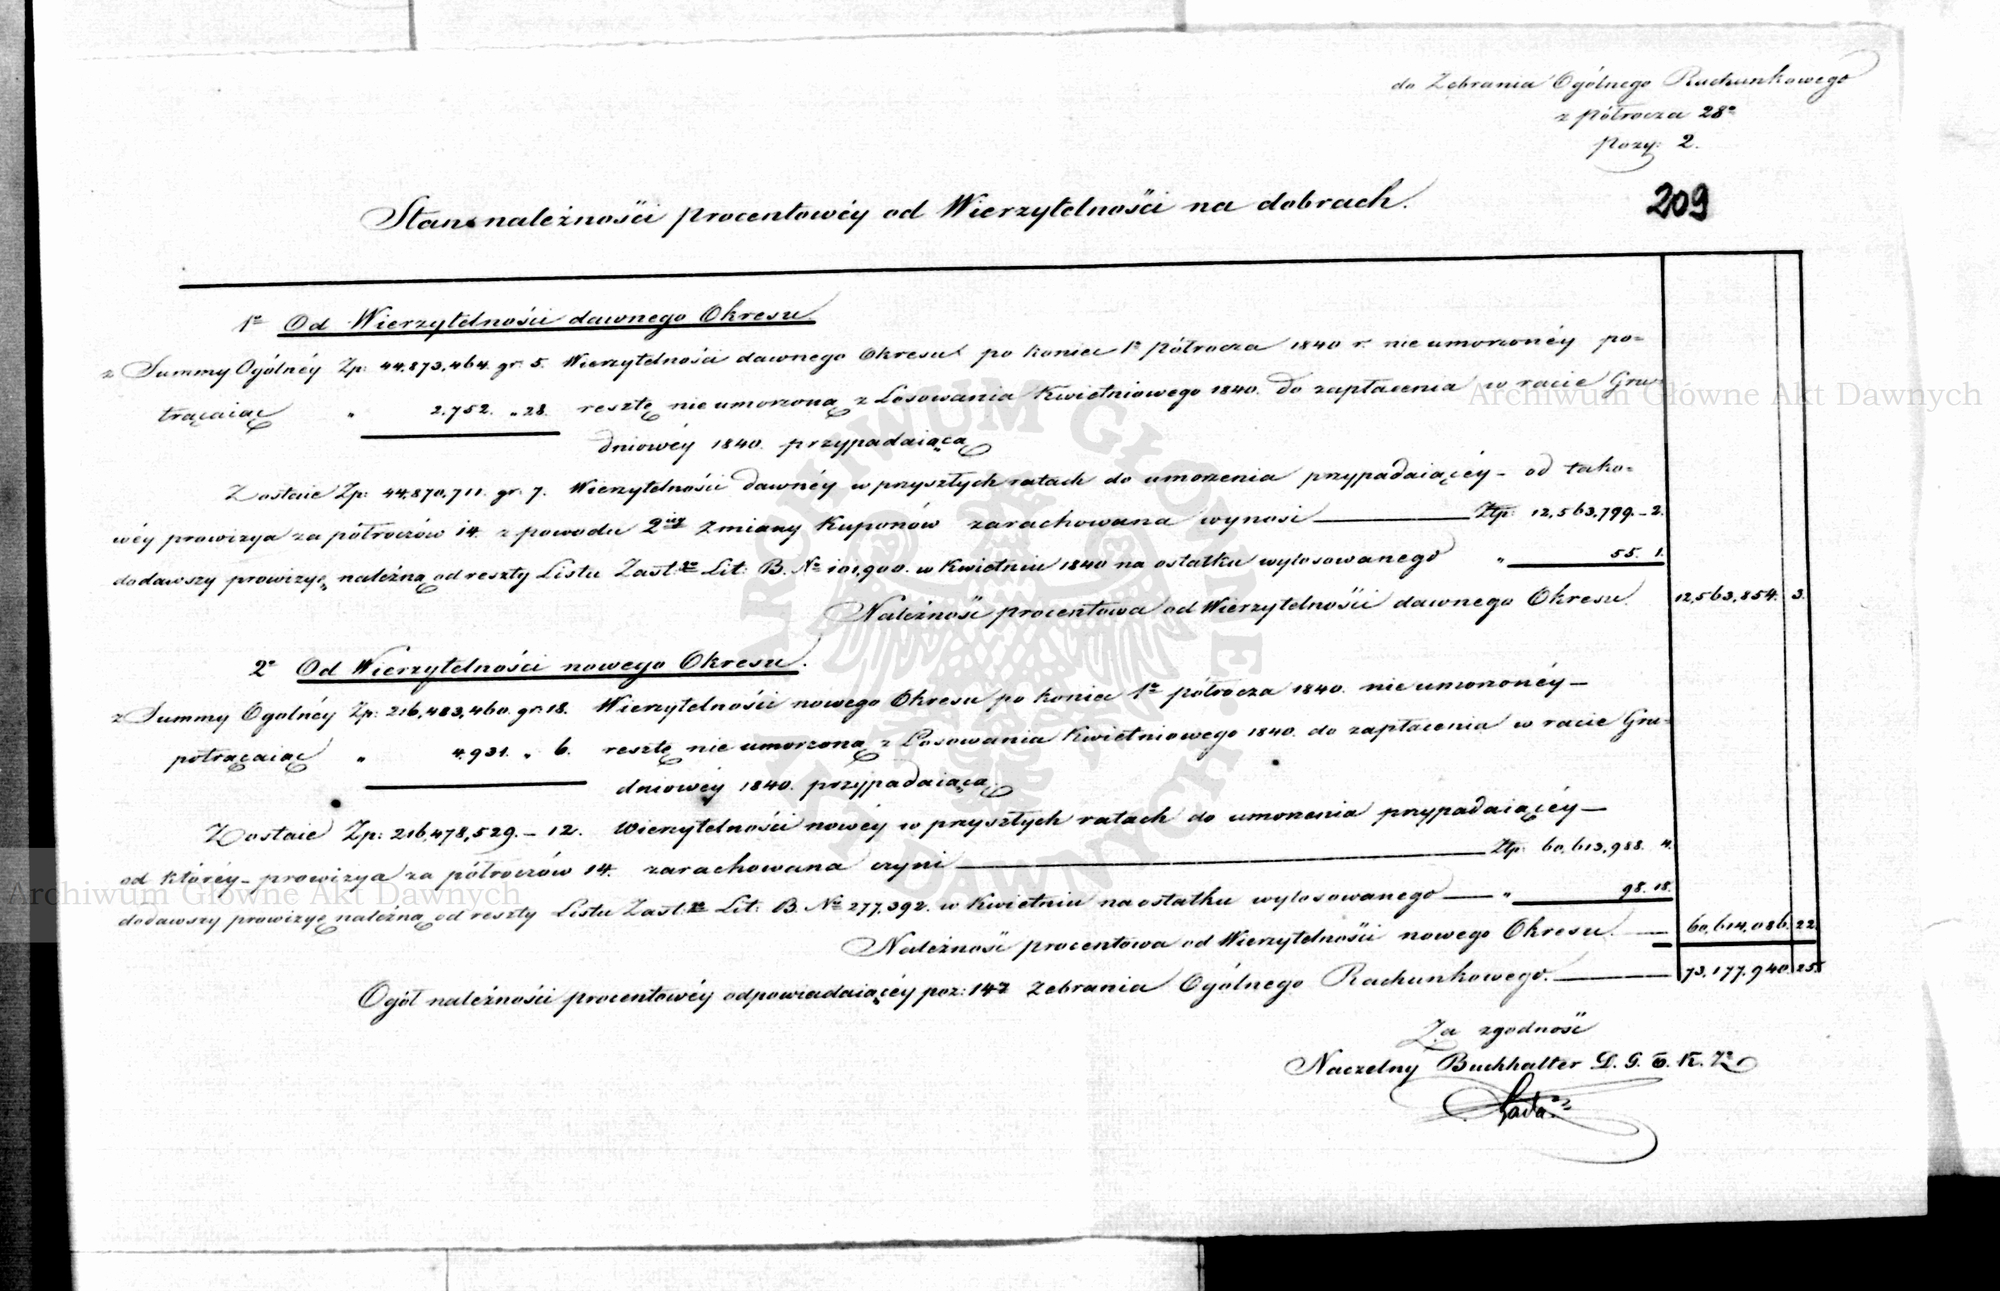 do Zebrania Ogólnego Rachunkowego
z półrocza 28º
pozy: 2.
209
Stan należności procentowéy od Wierzytelności na dobrach.
1º Od Wierzytelności dawnego Okresu.
z Summy Ogólnéy Zp: 44,873,464. gr. 5. Wierzytelności dawnego Okresu po koniec 1º Półrocza 1840 r. nieumorzonéy po=
trącaiąc " 2,752. " 28. resztę nieumorzoną z Losowania Kwietniowego 1840. do zapłacenia w racie Gru=
dniowéy 1840. przypadaiącą
Zostaie Zp: 44,870,711. gr. 7. Wierzytelności dawnéy w przyszłych ratach do umorzenia przypadaiącéy – od tako=
wéy prowizya za półroczów 14. z powodu 2iéy Zmiany Kuponów zarachowana wynosi Złp: 12,563,799 – 2.
dodawszy prowizyę należną od reszty Listu Zast: Lit: B. Nº 101,900. w Kwietniu 1840 na ostatku wylosowanego " 55. 1.
Należność procentowa od Wierzytelności dawnego Okresu. 12,563,854. 3.
2º Od Wierzytelności nowego Okresu.
z Summy Ogólnéy Zp: 216,483,460. gr. 18. Wierzytelności nowego Okresu po koniec 1º półrocza 1840. nieumorzonéy –
potrącaiąc " 4,931. " 6. resztę nieumorzoną z Losowania Kwietniowego 1840. do zapłacenia w racie Gru=
dniowéy 1840. przypadaiącą
Zostaie Zp: 216,478,529. – 12. Wierzytelności nowéy w przyszłych ratach do umorzenia przypadaiącéy –
od któréy – prowizya za półroczów 14. zarachowana czyni Złp: 60,613,988. 4.
dodawszy prowizyę należną od reszty Listu Zast: Lit: B. Nº 277,392. w Kwietniu na ostatku wylosowanego — " 98. 18.
Należność procentowa od Wierzytelności nowego Okresu. — 60,614,086. 22.
Ogół należności procentowéy odpowiadaiącéy poz: 147 Zebrania Ogólnego Rachunkowego. 73,177,940. 25.
Za zgodność
Naczelny Buchhalter D. G. T. K. Zº
Archiwum Główne Akt Dawnych
Archiwum Główne Akt Dawnych
ARCHIWUM GŁÓWNE AKT DAWNYCH